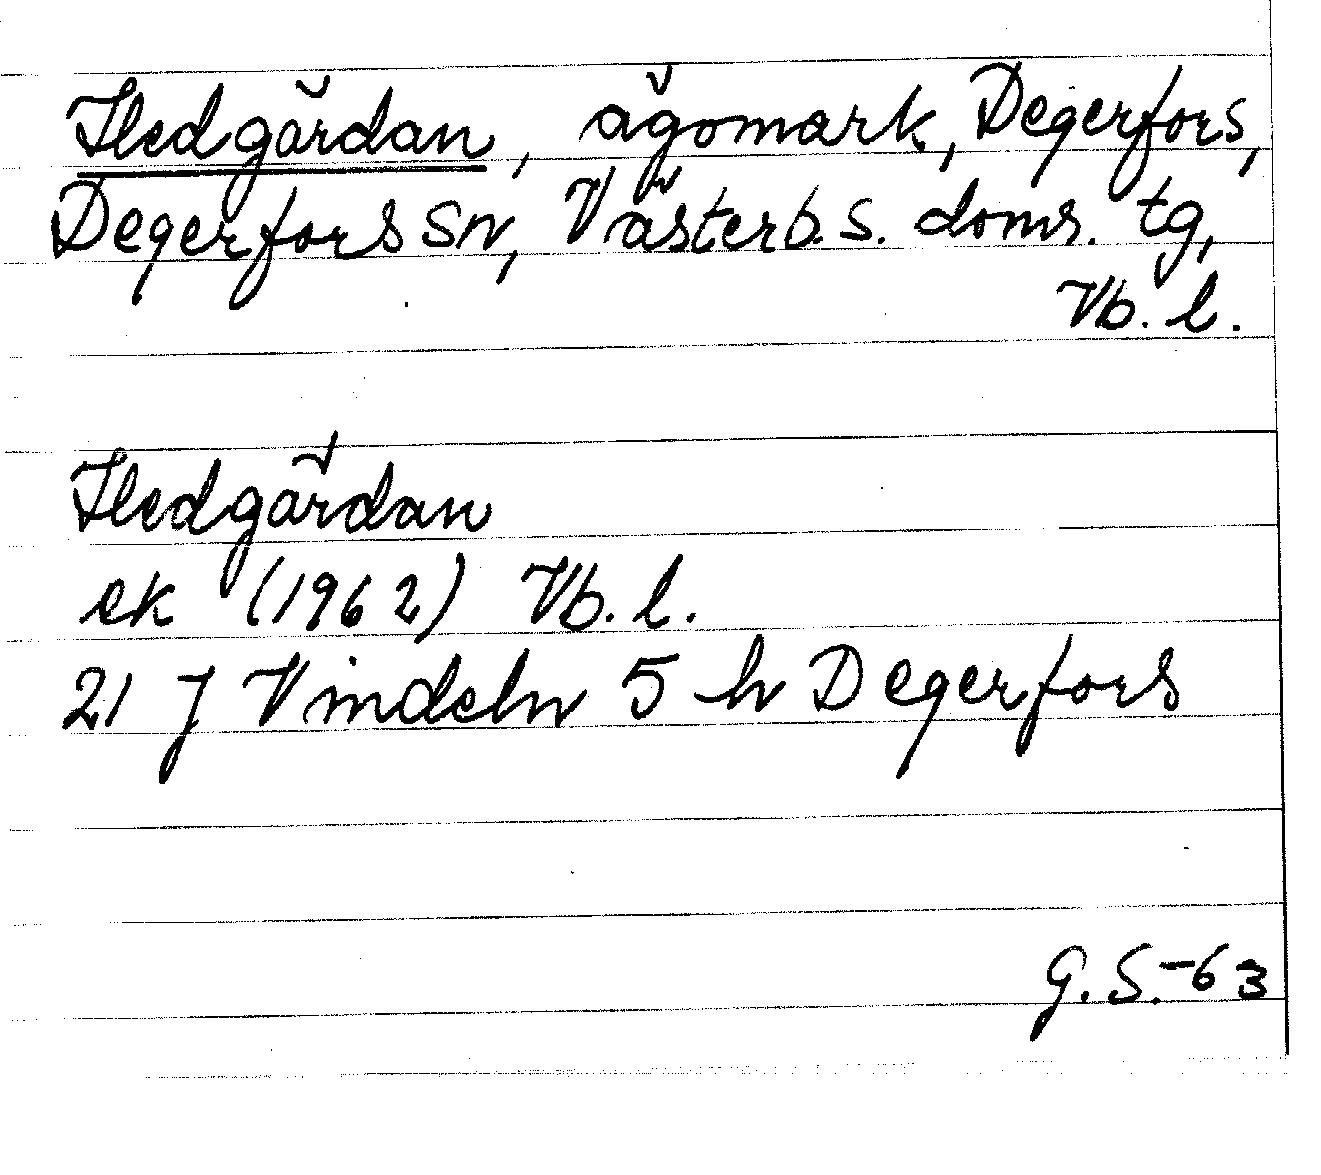 Hedgärdan, ägomark, Degerfors,
Degerfors sn, Västerb. s. doms. tg,
Vb. l.
Hedgärdan
ek (1962) Vb. l.
21 J Vindeln 5 h Degerfors
G. S. -63